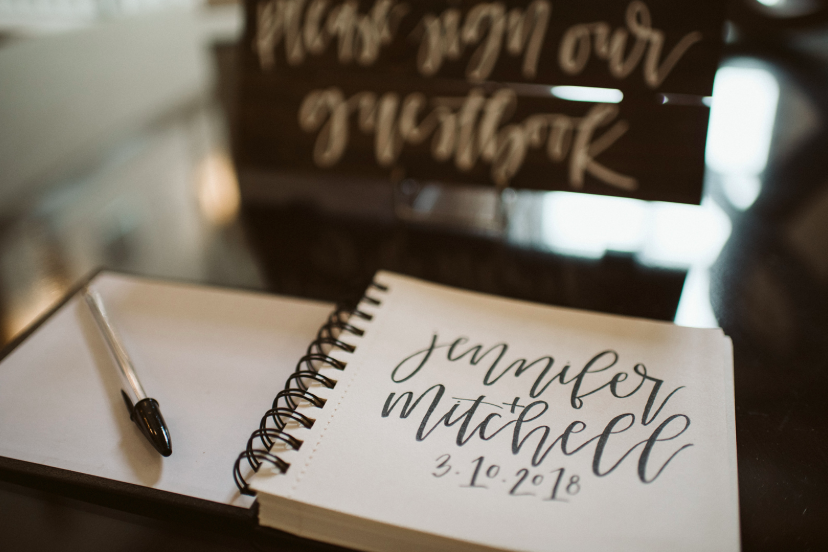 please sign our
guestbook
jennifer
+
mitchell
3.10.2018